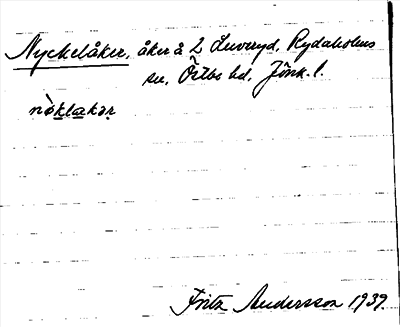 Nyckelåker, åker å 2 Luveryd, Rydaholms
sn, Östbo hd, Jönk. l.
nø̀klakər
Fritz Andersson 1939.